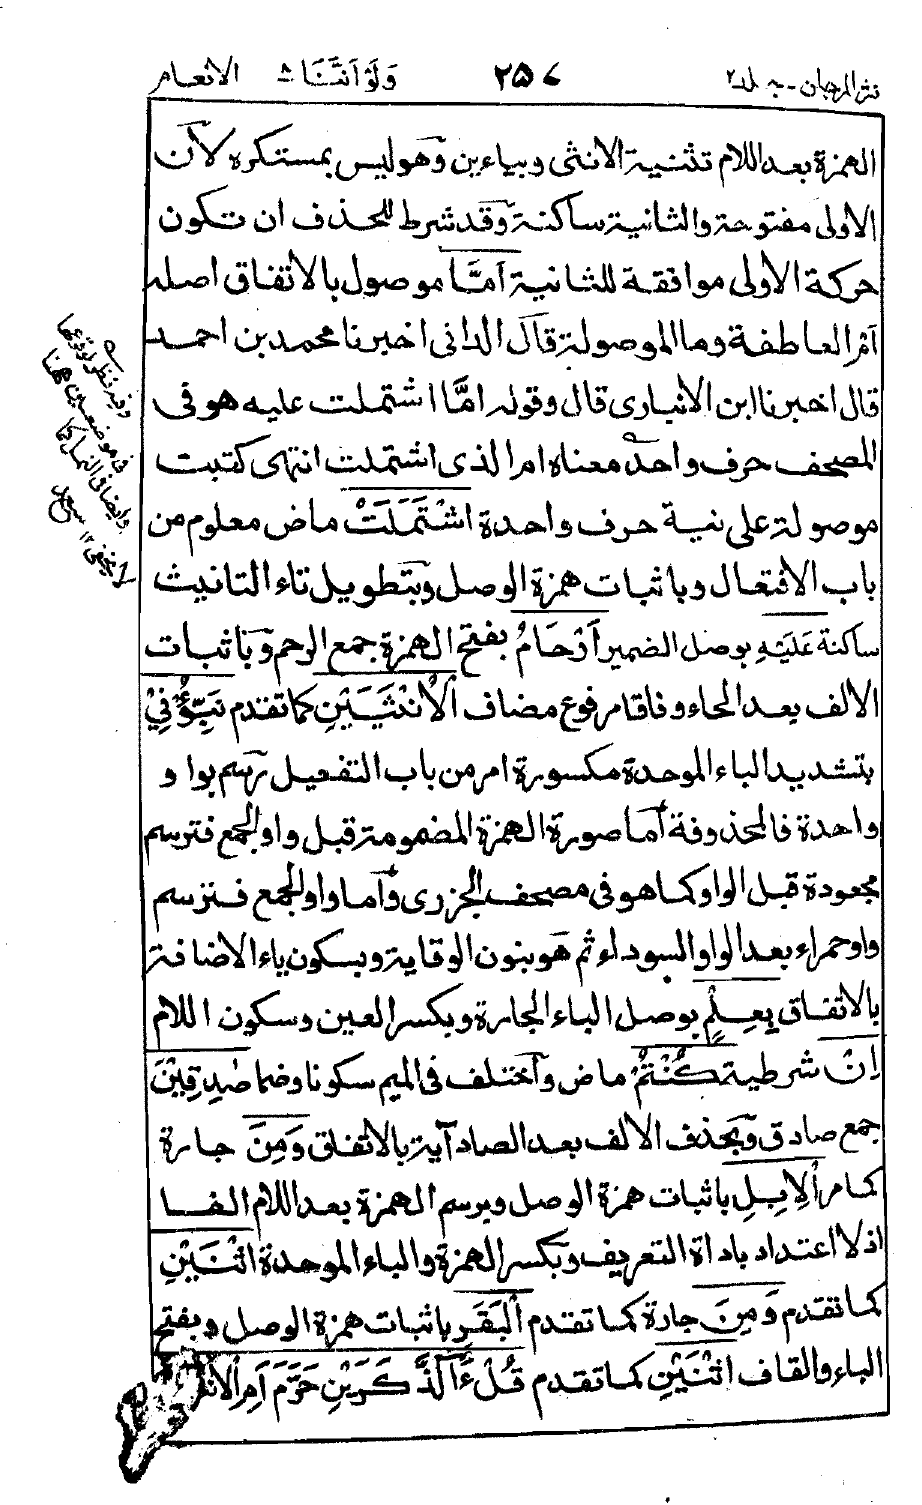 نثر المرجان - جلد ٢ ٢٥٧ وَلَوْ اَنَّنَا ٨ الانعام
الهمزة بعد اللام تثنية الانثى وبياءين وهو ليس بمستكره لان
الاولى مفتوحة والثانية ساكنة وقد شرط للحذف ان تكون
حركة الاولى موافقة للثانية اَمَّا موصول بالاتفاق اصله
ام العاطفة وما الموصولة قال الدانى اخبرنا محمد بن احمد
قال اخبرنا ابن الانبارى قال وقوله امّا اشتملت عليه هو فى
المصحف حرف واحد معناه ام الذى اشتملت انتهى كتبت
موصولة على نية حرف واحدة اشْتَمَلَتْ ماض معلوم من
باب الافتعال وباثبات همزة الوصل وبتطويل تاء التانيث
ساكنة عَلَيْهِ بوصل الضمير اَرْحَامُ بفتح الهمزة جمع الرحم وباثبات
الالف بعد الحاء وفاقا مرفوع مضاف الْاُنْثَيَيْنِ كما تقدم نَبِّؤُنِيْ
بتشديد الباء الموحدة مكسورة امر من باب التفعيل رسم بواو
واحدة فالمحذوفة اما صورة الهمزة المضمومة قبل واو الجمع فترسم
مجعودة قبل الواو كما هو فى مصحف الجزرى واما واو الجمع فترسم
واو حمراء بعد الواو السوداء ثم هو بنون الوقاية وبسكون ياء الاضافة
بالاتفاق بِعِلْمٍ بوصل الباء الجارة وبكسر العين وسكون اللام
اِنْ شرطية كُنْتُمْ ماض واختلف فى الميم سكونا وضما صٰدِقِيْنَ
جمع صادق وبحذف الالف بعد الصاد آية بالاتفاق وَمِنَ جارة
كما مر الْاِبِلِ باثبات همزة الوصل وبرسم الهمزة بعد اللام الفا
اذ لا اعتداد باداة التعريف وبكسر الهمزة والباء الموحدة اثْنَيْنِ
كما تقدم وَمِنَ جارة كما تقدم الْبَقَرِ باثبات همزة الوصل وبفتح
الباء والقاف اثْنَيْنِ كما تقدم قُلْ ءَٓالذَّكَرَيْنِ حَرَّمَ اَمِ
وفيه نظر لوقوعها
فى موضعين ههنا
وايضا فى النمل كما
لا يخفى ١٢